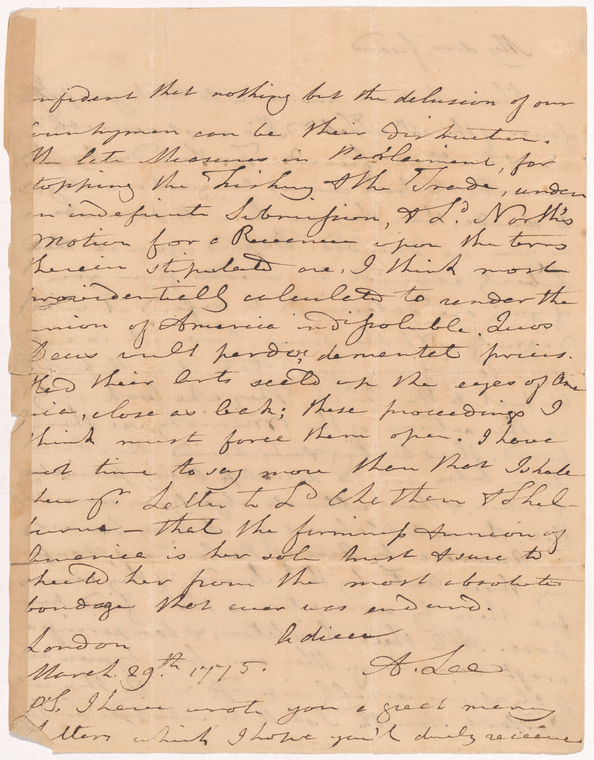 onfident that nothing but the delusion of our
Countrymen can be their distruction.
The late Measures in Parliament, for
stopping the Fishery & the Trade, under
an indefinite Submission, & Ld. North's
Motion for a Revenue upon the terms
therein stipulated are, I think most
providentially calculated to render the
union of America indissoluble. Quos
Deus vult perdere, dementat prius.
Had their Arts seel'd up the eyes of Ame
rica, close as Oak; these proceedings I
think must force them open. I have
not time to say more than that I shall
shew yr. Letter to Ld Chatham & Shel-
burne – that the firmness & union of
America is her sole trust & sure to
sheild her from the most absolute
bondage that ever was endured.
Adieu
London
March 29th. 1775.
A. Lee
P.S. I have wrote you a great many
Letters which I hope you'l duely receive